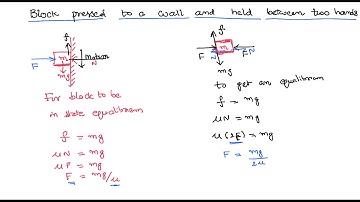 Block pressed to a wall and held between two hands
f
F
m
Motion
N
mg
For block to be
in state equilibrium
f = mg
μN = mg
μF = mg
F = mg/μ
f
F
N
m
N
F
mg
to get an equilibrium
f = mg
μN = mg
μ(2F) = mg
F = mg/2μ